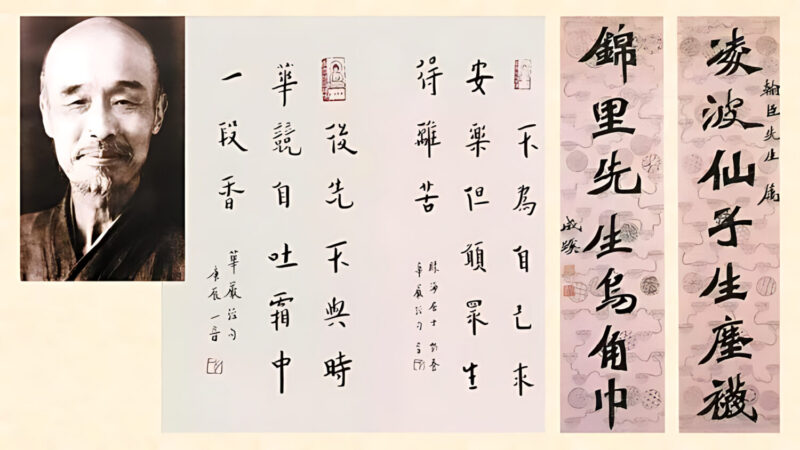 翰臣先生屬
凌波仙子生塵襪
錦里先生烏角巾
成蹊
不為自己求
安樂但願眾生
得離苦
居士
華嚴經句
後先不與時
華競自吐霜中
一段香
華嚴經句
庚辰一音